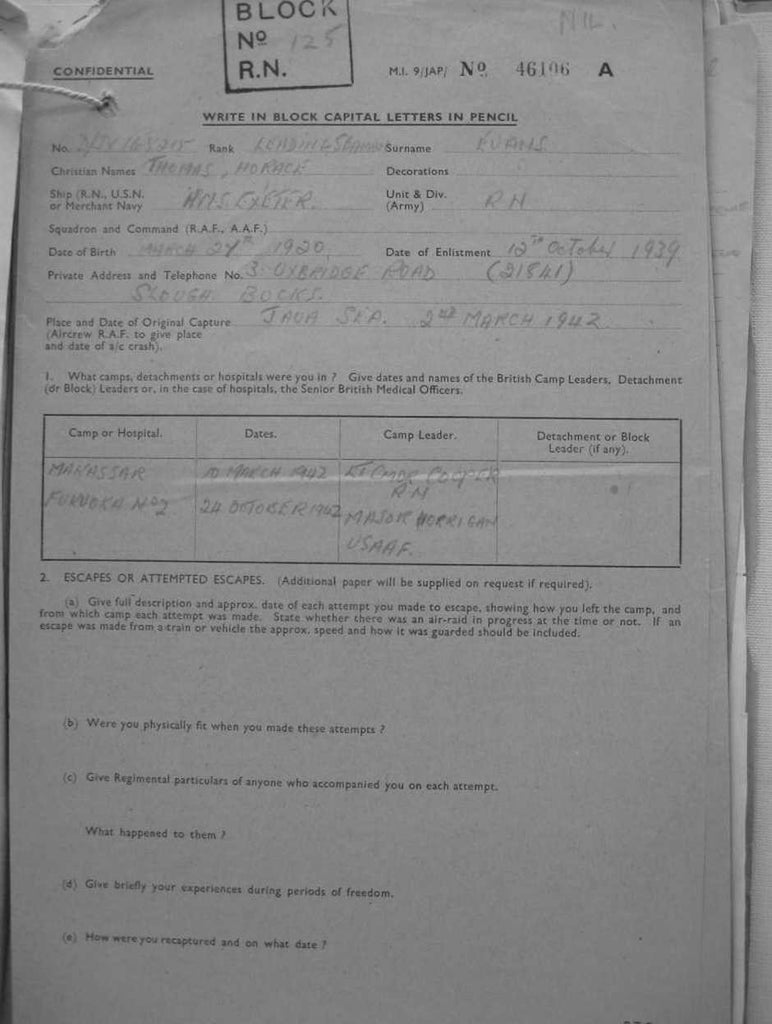 BLOCK
Nº 125
R.N.
NIL.
CONFIDENTIAL
M.I. 9/JAP/ Nº 46106 A
WRITE IN BLOCK CAPITAL LETTERS IN PENCIL
No. Rank LEADING SEAMAN Surname EVANS
Christian Names THOMAS, HORACE Decorations
Ship (R.N., U.S.N. or Merchant Navy HMS. EXETER. Unit & Div. (Army) RN
Squadron and Command (R.A.F., A.A.F.)
Date of Birth MARCH 27TH 1920 Date of Enlistment 12TH October 1939
Private Address and Telephone No. 3 UXBRIDGE ROAD (21841)
SLOUGH BUCKS.
Place and Date of Original Capture JAVA SEA. 2nd MARCH 1942
(Aircrew R.A.F. to give place
and date of a/c crash).
1. What camps, detachments or hospitals were you in ? Give dates and names of the British Camp Leaders, Detachment
(or Block) Leaders or, in the case of hospitals, the Senior British Medical Officers.
Camp or Hospital. Dates. Camp Leader. Detachment or Block
Leader (if any).
MAKASSAR 10 MARCH 1942 LT CMDR COOPER
RN
FUKUOKA Nº2 24 OCTOBER 1942 MAJOR HORRIGAN
USAAF.
2. ESCAPES OR ATTEMPTED ESCAPES. (Additional paper will be supplied on request if required).
(a) Give full description and approx. date of each attempt you made to escape, showing how you left the camp, and
from which camp each attempt was made. State whether there was an air-raid in progress at the time or not. If an
escape was made from a train or vehicle the approx. speed and how it was guarded should be included.
(b) Were you physically fit when you made these attempts ?
(c) Give Regimental particulars of anyone who accompanied you on each attempt.
What happened to them ?
(d) Give briefly your experiences during periods of freedom.
(e) How were you recaptured and on what date ?